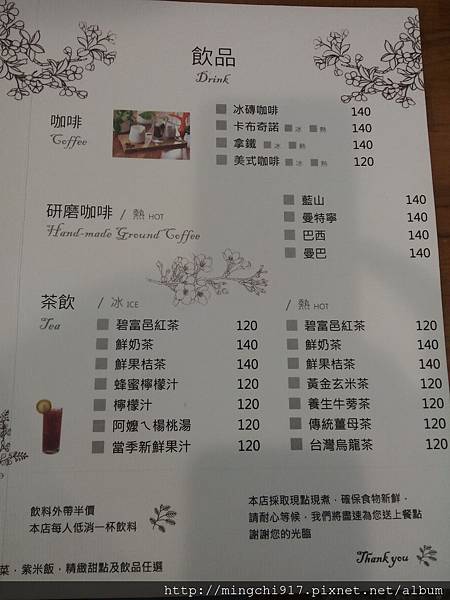 飲品
Drink
咖啡
Coffee
冰磚咖啡 140
卡布奇諾 冰 熱 140
拿鐵 冰 熱 140
美式咖啡 冰 熱 120
研磨咖啡 / 熱 HOT
Hand-made Ground Coffee
藍山 140
曼特寧 140
巴西 140
曼巴 140
茶飲
Tea
/ 冰 ICE
碧富邑紅茶 120
鮮奶茶 140
鮮果桔茶 140
蜂蜜檸檬汁 120
檸檬汁 120
阿嬤ㄟ楊桃湯 120
當季新鮮果汁 120
/ 熱 HOT
碧富邑紅茶 120
鮮奶茶 140
鮮果桔茶 140
黃金玄米茶 120
養生牛蒡茶 120
傳統薑母茶 120
台灣烏龍茶 120
飲料外帶半價
本店每人低消一杯飲料
本店採取現點現煮，確保食物新鮮，
請耐心等候，我們將盡速為您送上餐點
謝謝您的光臨
Thank you
菜，紫米飯，精緻甜點及飲品任選
http://mingchi917.pixnet.net/album